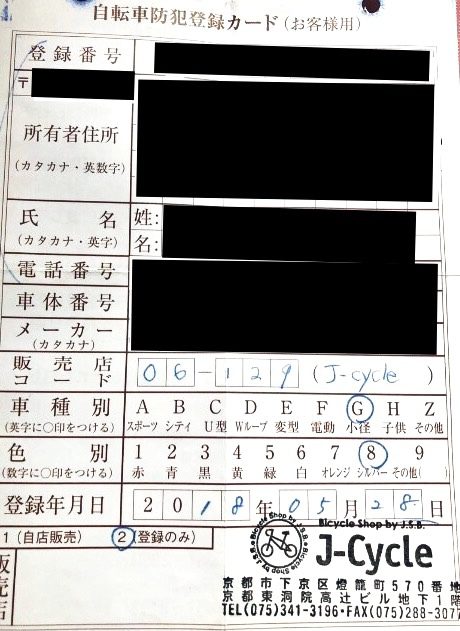 自転車防犯登録カード(お客様用)
登録番号
〒
所有者住所
(カタカナ・英数字)
氏名 姓:
(カタカナ・英字) 名:
電話番号
車体番号
メーカー
(カタカナ)
販売店コード 06-129 (J-cycle)
車種別 A B C D E F G H Z
(英字に○印をつける) スポーツ シティ U型 Wループ 変型 電動 小径 子供 その他
色別 1 2 3 4 5 6 7 8 9
(数字に○印をつける) 赤 青 黒 黄 緑 白 オレンジ シルバー その他( )
登録年月日 2018年05月28日
1 (自店販売) 2 (登録のみ)
販売店
Bicycle Shop by J.S.B.
Bicycle Shop by J.S.B.
J-Cycle
京都市下京区燈籠町570番地
京都東洞院高辻ビル地下1階
TEL(075)341-3196・FAX(075)288-3077